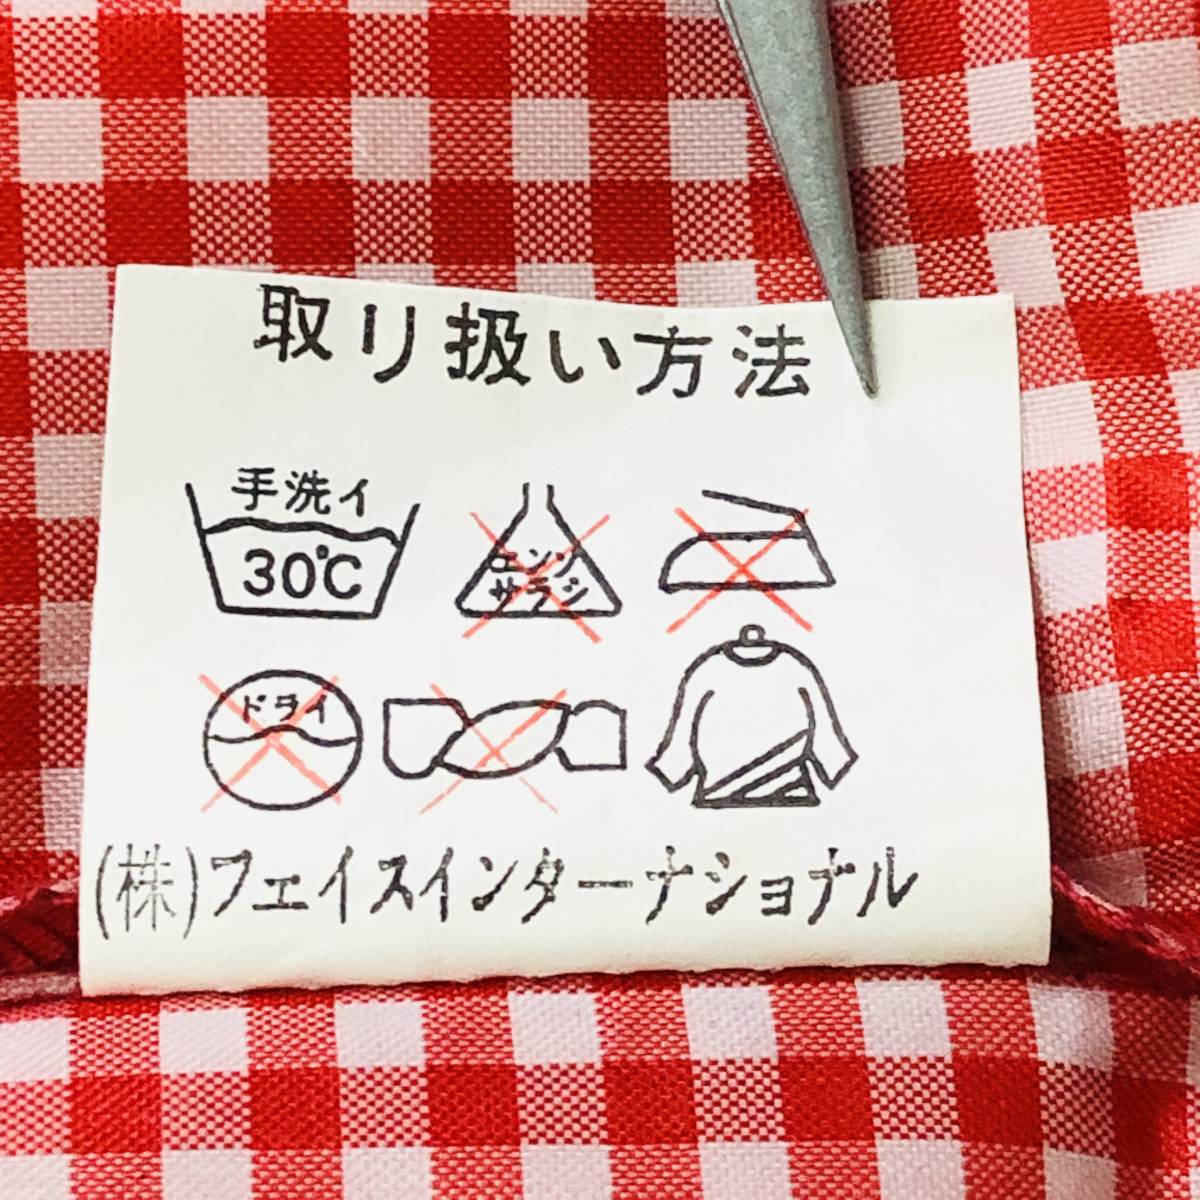 取リ扱い方法
手洗イ
30℃
エンソ
サラシ
ドライ
(株)フェイスインターナショナル